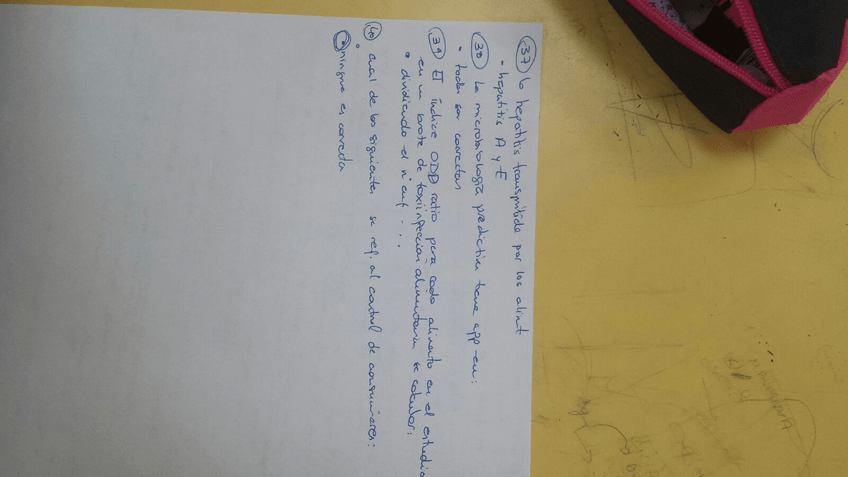 37 La hepatitis transmitida por los aliment
• hepatitis A y E
38 La microbiología predictiva tiene app en:
• todas son correctas
39 El Índice ODD ratio para cada alimento en el estudio
en un brote de toxiinfección alimentaria se calcula:
• dividiendo el nº enf. ...
40 cual de los siguientes se ref. al control de consumidores:
• ninguna es correcta